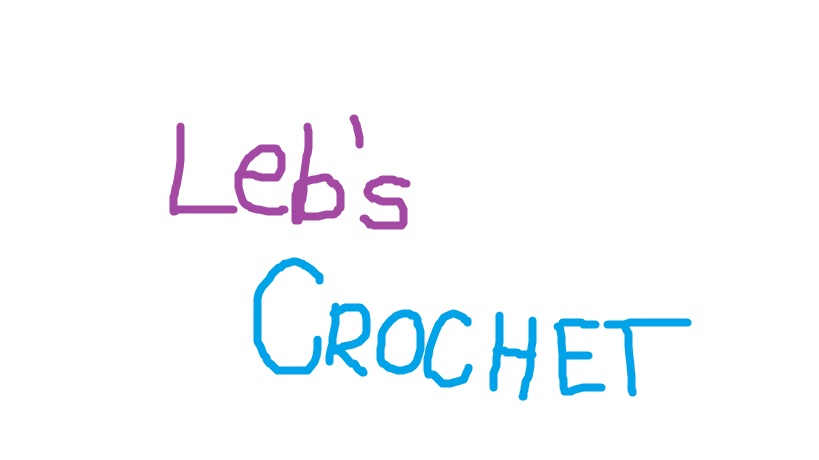 Leb's
CROCHET